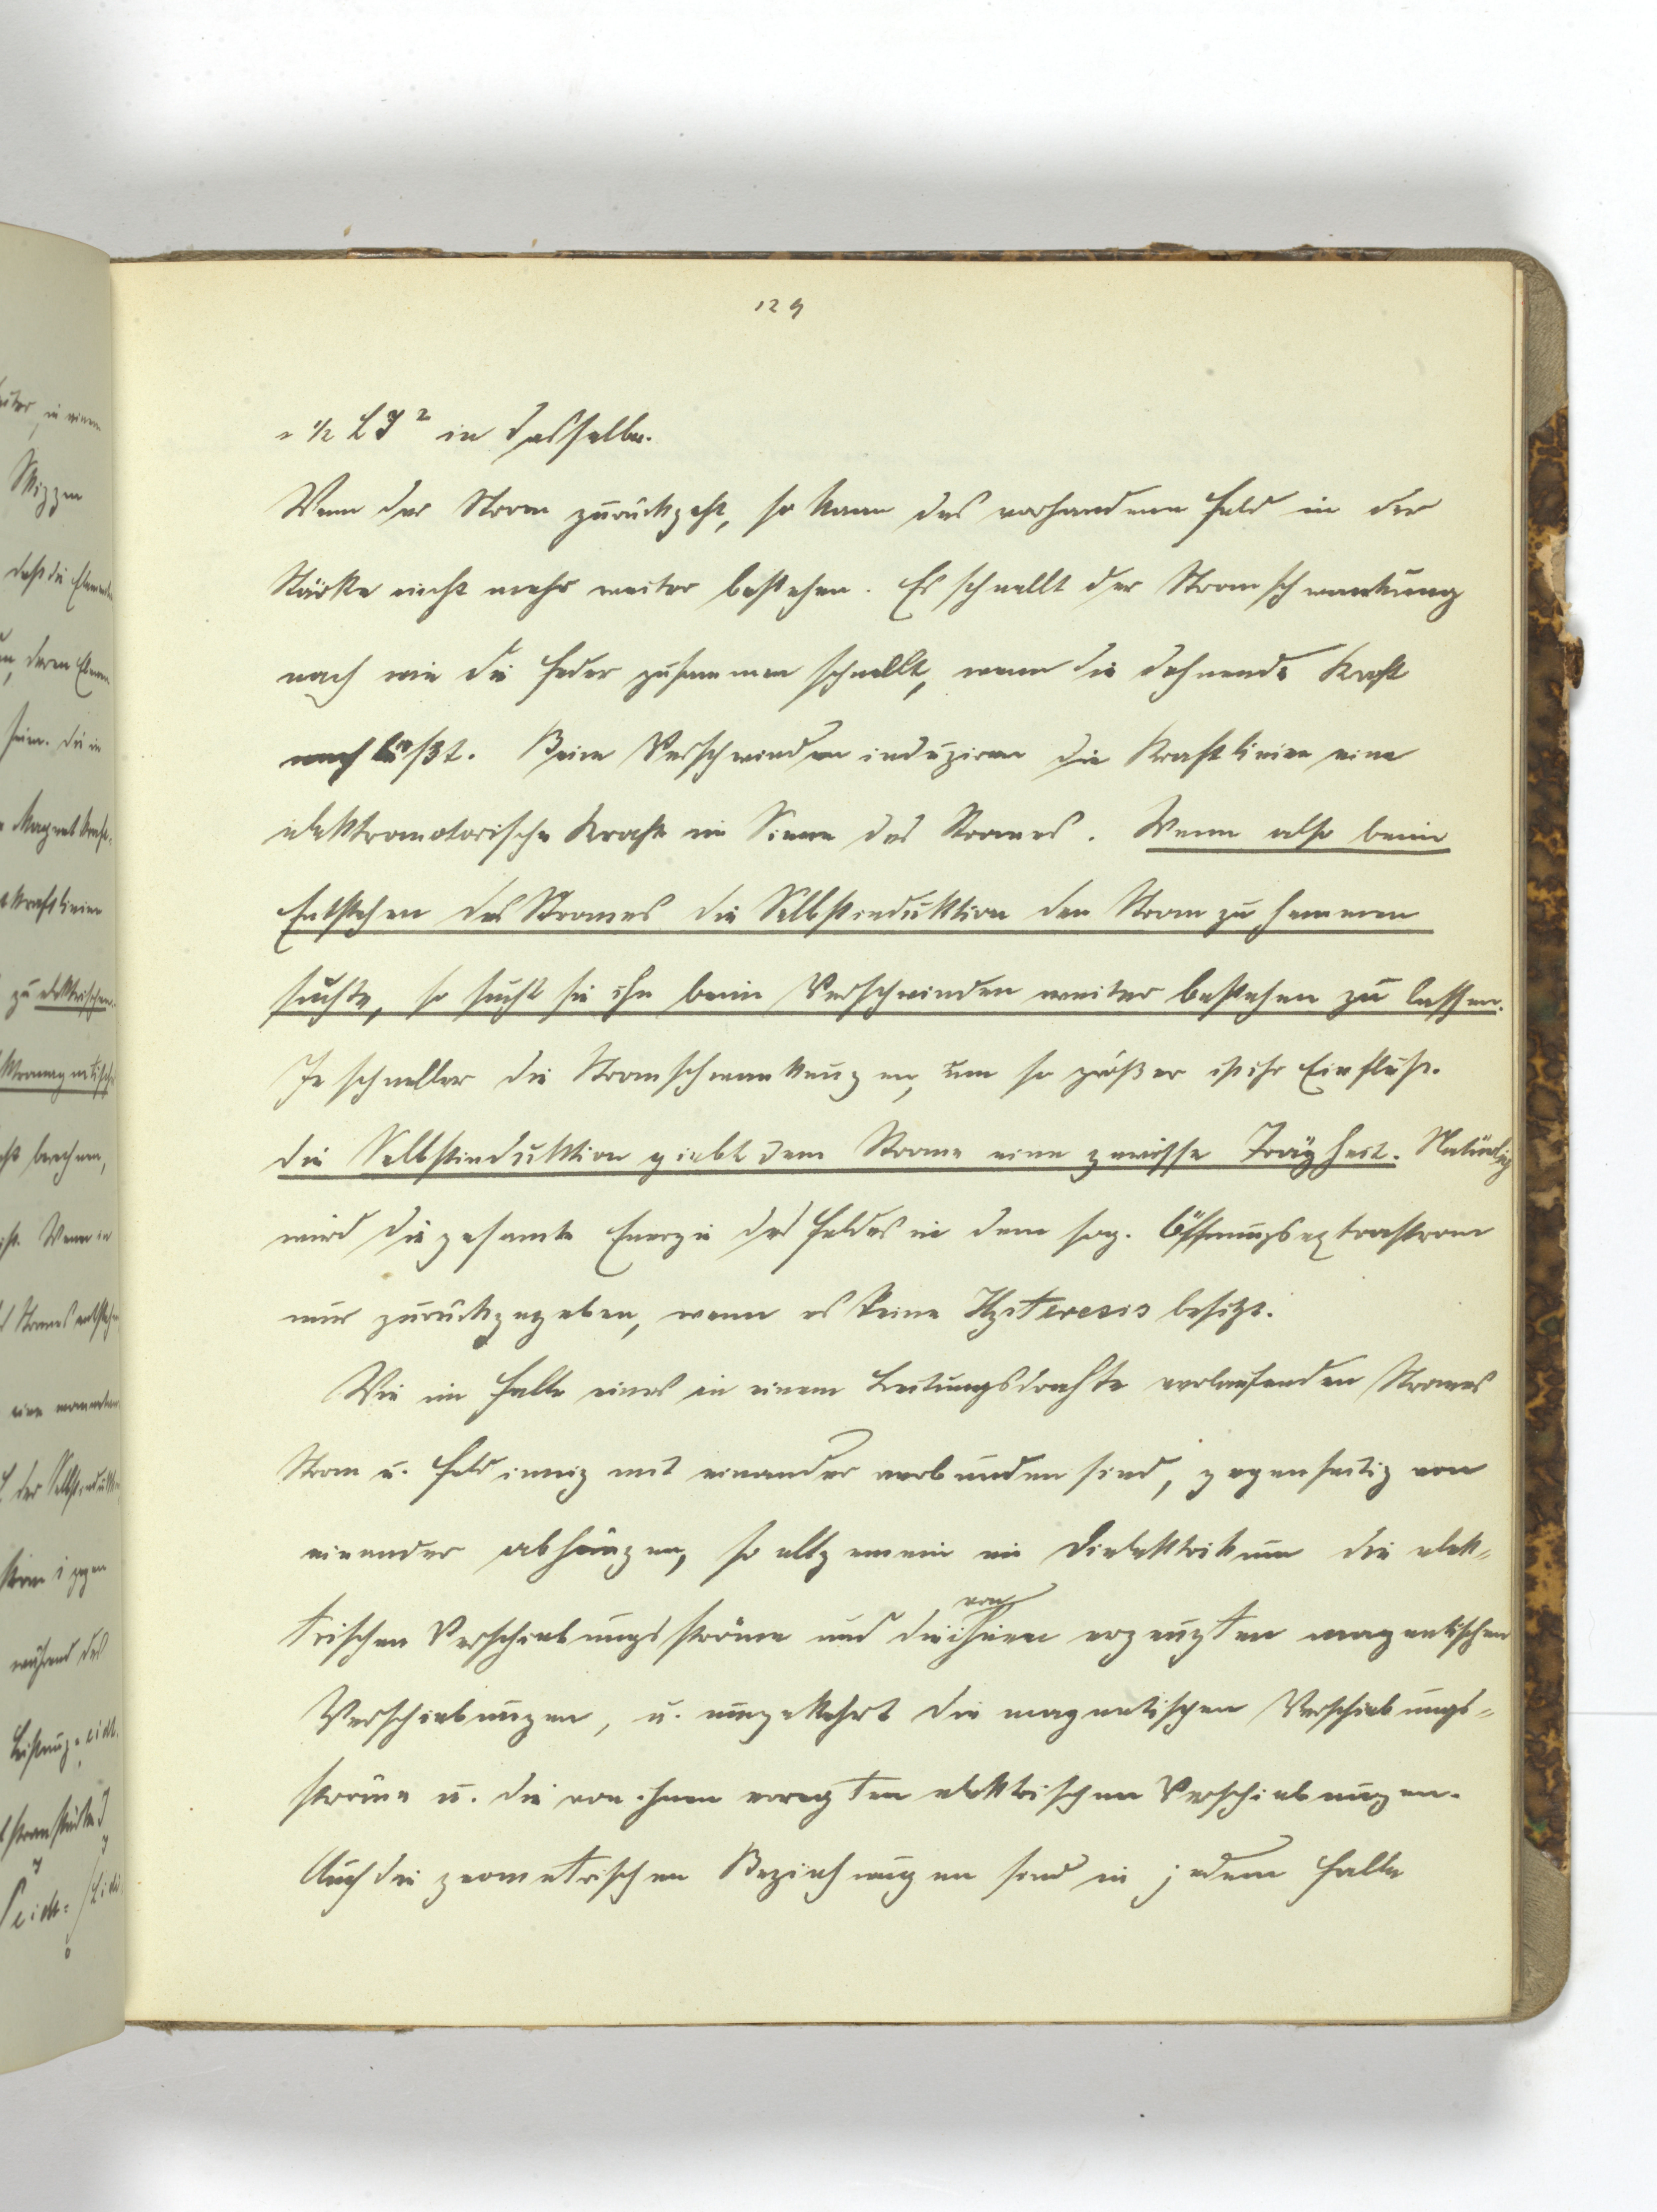 129
= 1/2 L J² in dasselbe.
Wenn der Strom zurückgeht, so kann das vorhandene Feld in der
Stärke nicht mehr weiter bestehen. Es schnellt der Stromschwankung
nach wie die Feder zusammen schnellt, wenn die dehnende Kraft
nachläßt. Beim Verschwinden induziren die Kraftlinien eine
elektromotorische Kraft im Sinne des Stromes. Wenn also beim
Entstehen des Stromes die Selbstinduktion den Strom zu hemmen
suchte, so sucht sie ihn beim Verschwinden weiter bestehen zu lassen.
Je schneller die Stromschwankungen, um so größer ist ihr Einfluß.
Die Selbstinduktion giebt dem Strome eine gewisse Trägheit. Natürlich
wird die gesamte Energie des Feldes in dem sog. Öffnungsextrastrom
nur zurückgegeben, wenn es keine Hysteresis besitzt.
Wie im Falle eines in einem Leitungsdrahte verlaufenden Stromes
Strom u. Feld innig mit einander verbunden sind, gegenseitig von
einander abhängen, so allgemein im Dielektrikum die elek-
trischen Verschiebungsströme und die von ihnen erzeugten magnetischen
Verschiebungen, u. umgekehrt die magnetischen Verschiebungs-
ströme u. die von ihnen erregten elektrischen Verschiebungen.
Auch die geometrischen Beziehungen sind in jedem Falle